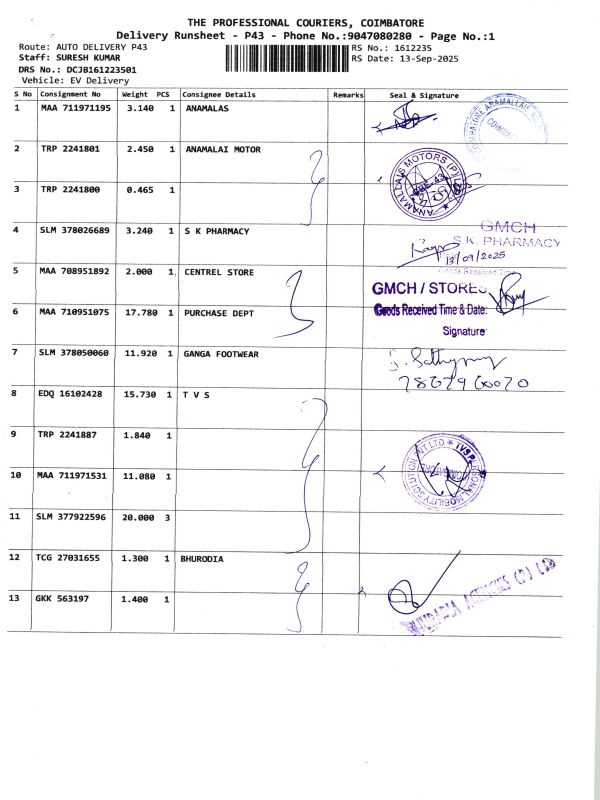 THE PROFESSIONAL COURIERS, COIMBATORE
Delivery Runsheet - P43 - Phone No.:9047080280 - Page No.:1
Route: AUTO DELIVERY P43 RS No.: 1612235
Staff: SURESH KUMAR RS Date: 13-Sep-2025
DRS No.: DCJB161223501
Vehicle: EV Delivery
S No Consignment No Weight PCS Consignee Details Remarks Seal & Signature
1 MAA 711971195 3.140 1 ANAMALAS
2 TRP 2241801 2.450 1 ANAMALAI MOTOR
3 TRP 2241800 0.465 1
ANAMALLAIS MOTORS (P) LTD
4 SLM 378026689 3.240 1 S K PHARMACY
GMCH
S.K. PHARMACY
13/09/2025
Goods Received Time
5 MAA 708951892 2.000 1 CENTREL STORE
GMCH / STORES
6 MAA 710951075 17.780 1 PURCHASE DEPT
Goods Received Time & Date:
Signature:
7 SLM 378050060 11.920 1 GANGA FOOTWEAR
8 EDQ 16102428 15.730 1 T V S
9 TRP 2241887 1.840 1
10 MAA 711971531 11.080 1
11 SLM 377922596 20.000 3
12 TCG 27031655 1.300 1 BHURODIA
13 GKK 563197 1.400 1
AGENCIES (P) LTD